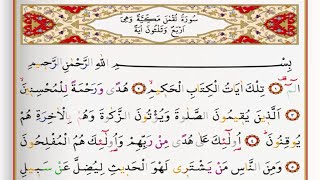 سُورَةُ لُقْمٰنَ مَكِّيَّةٌ وَهِيَ
اَرْبَعٌ وَثَلٰثُونَ اٰيَةً
بِسْمِ اللّٰهِ الرَّحْمٰنِ الرَّحِيمِ
الٓمٓ ۚ تِلْكَ اٰيَاتُ الْكِتَابِ الْحَكِيمِۙ هُدًى وَرَحْمَةً لِلْمُحْسِنِينَۙ
اَلَّذِينَ يُقِيمُونَ الصَّلٰوةَ وَيُؤْتُونَ الزَّكٰوةَ وَهُمْ بِالْاٰخِرَةِ هُمْ
يُوقِنُونَۜ اُولٰٓئِكَ عَلٰى هُدًى مِنْ رَبِّهِمْ وَاُولٰٓئِكَ هُمُ الْمُفْلِحُونَ
وَمِنَ النَّاسِ مَنْ يَشْتَرِى لَهْوَ الْحَدِيثِ لِيُضِلَّ عَنْ سَبِيلِ